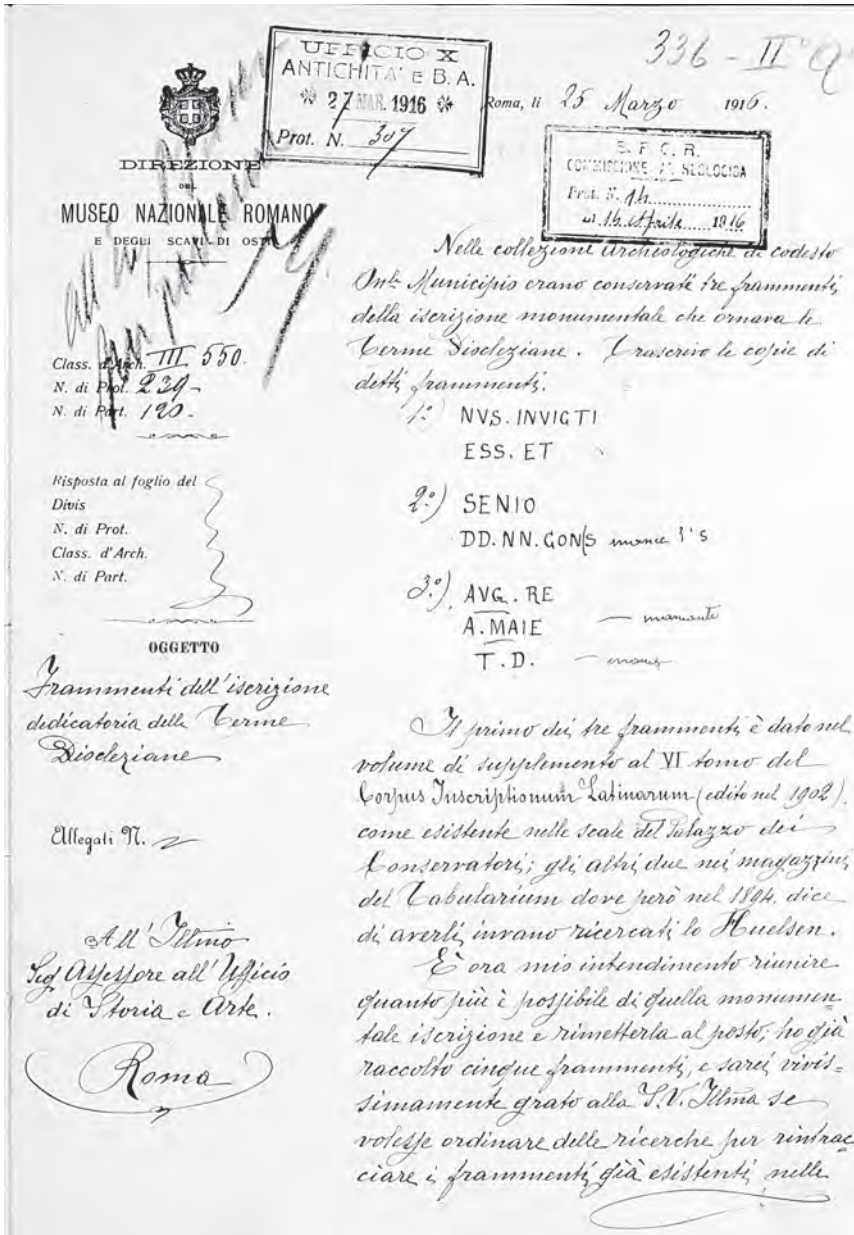 336 - II
UFFICIO X
ANTICHITA' E B. A.
27 MAR. 1916
Prot. N. 307
Roma, li 25 Marzo 1916.
S. P. Q. R.
COMMISSIONE ARCHEOLOGICA
Prot. N. 14
li 14 Aprile 1916
DIREZIONE
DEL
MUSEO NAZIONALE ROMANO
E DEGLI SCAVI DI OSTIA
Class. d'Arch. III 550.
N. di Prot. 239-
N. di Part. 120-
Risposta al foglio del
Divis
N. di Prot.
Class. d'Arch.
N. di Part.
OGGETTO
Frammenti dell'iscrizione
dedicatoria delle Terme
Diocleziane
Allegati N.
All' Illmo
Sig Assessore all'Ufficio
di Storia e Arte.
Roma
Nelle collezione archeologiche di codesto
Onle Municipio erano conservati tre frammenti
della iscrizione monumentale che ornava le
Terme Diocleziane. Trascrivo le copie di
detti frammenti.
1º) NVS. INVICTI
ESS. ET
2º) SENIO
DD. NN. CONS
3º) AVG. RE
A. MAIE
T. D.
Il primo dei tre frammenti è dato nel
volume di supplemento al VI tomo del
Corpus Inscriptionum Latinarum (edito nel 1902).
come esistente nelle scale del Palazzo dei
Conservatori; gli altri due nei magazzini
del Tabularium dove però nel 1894. dice
di averli invano ricercati lo Huelsen.
È ora mio intendimento riunire
quanto più è possibile di quella monumen=
tale iscrizione e rimetterla al posto; ho già
raccolto cinque frammenti, e sarei vivis=
simamente grato alla S.V. Illma se
volesse ordinare delle ricerche per rintrac
ciare i frammenti già esistenti nelle